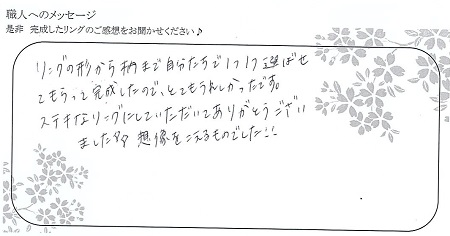 職人へのメッセージ
是非 完成したリングのご感想をお聞かせください♪
リングの形から柄まで自分たちで1つ1つ選ばせ
てもらって完成したので、とてもうれしかったです。
ステキなリングにしていただいてありがとうござい
ました!! 想像をこえるものでした!!